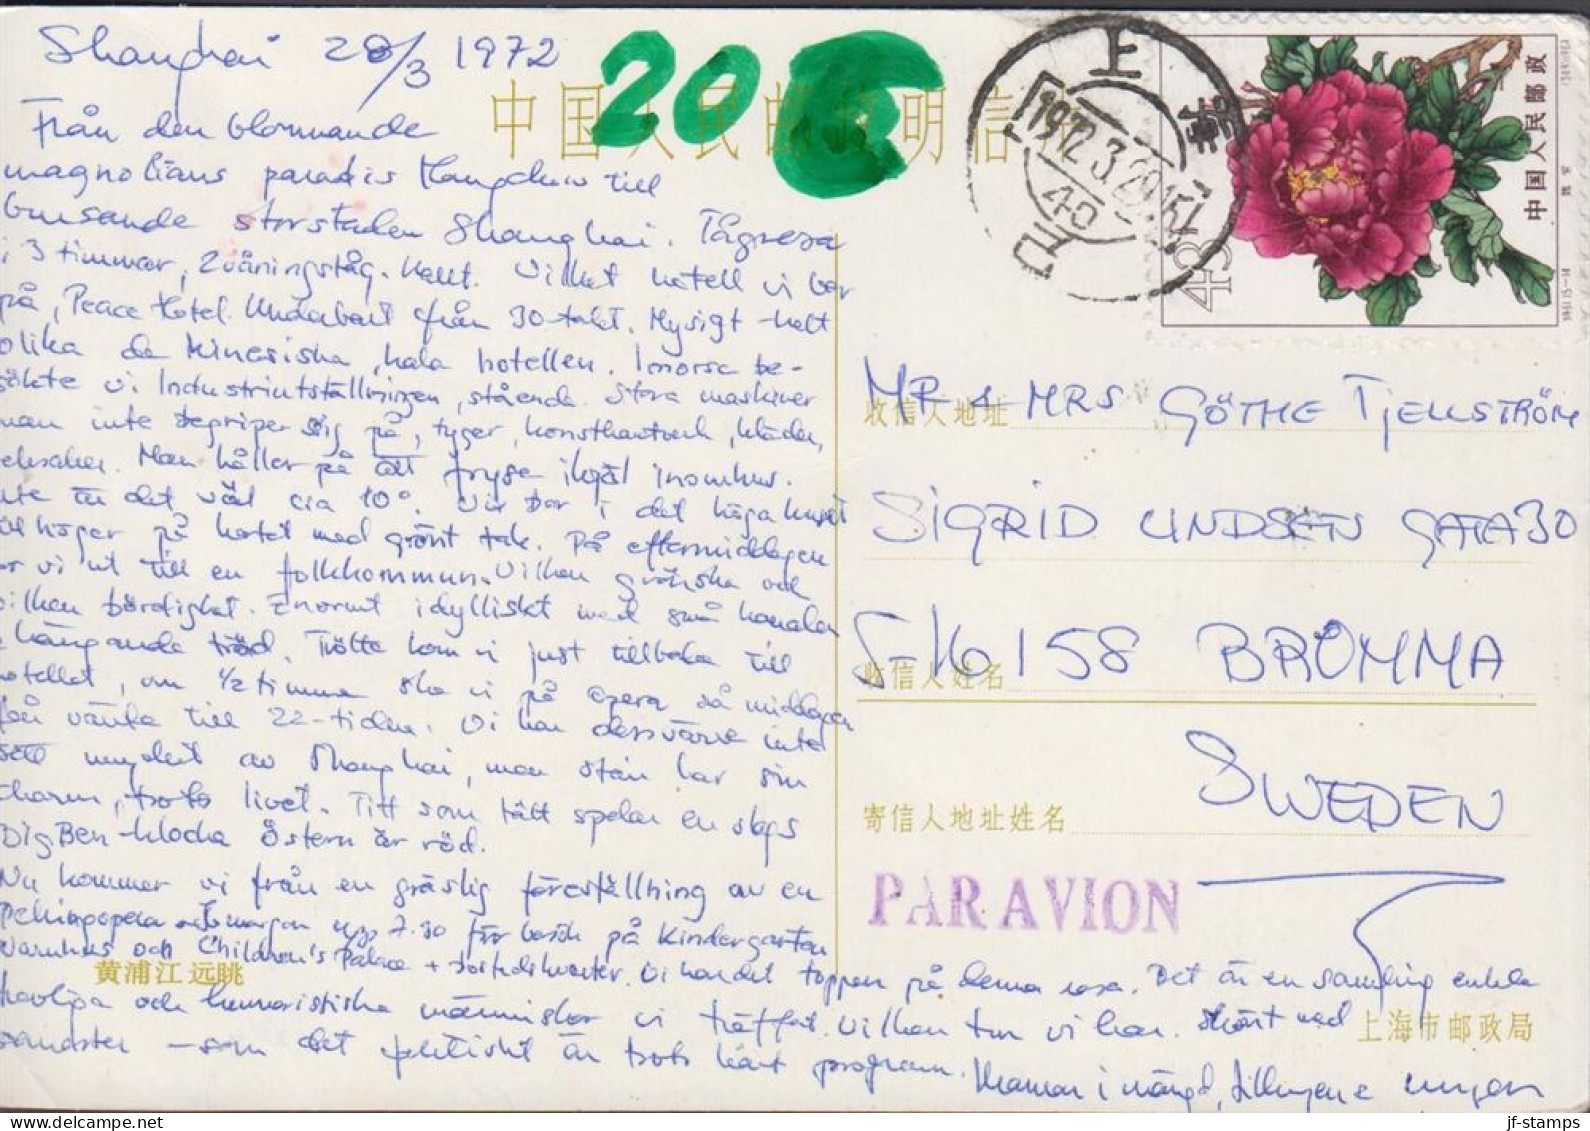 Shanghai 28/3 1972
20€
中国人民邮政明信片
上
1972.3.29.15
40
中国人民邮政
43
Från den blommande
magnolians paradis Hangchow till
brusande storstaden Shanghai. Tågresa
i 3 timmar, 2våningståg. Vilket hotell vi bor
på, Peace Hotel. Underbart från 30-talet. Mysigt helt
olika de kinesiska, kala hotellen. I morse be-
sökte vi Industriutställningen, stående. Stora maskiner
man inte begriper sig på, tyger, konsthantverk, kläder,
leksaker. Man håller på att frysa ihjäl inomhus.
ute är det väl cia 10°. Vi bor i det höga huset
till höger på kortet med grönt tak. På eftermiddagen
for vi ut till en folkkommun. Vilken grönska och
vilken bördighet. Enormt idylliskt med små kanaler
hängande träd. Trötta kom vi just tillbaka till
hotellet, om 1/2 timma ska vi på opera så middagen
får vänta till 22-tiden. Vi har dessvärre inte
sett mycket av Shanghai, men stan har sin
charm, trots livet. Titt som tätt spelar en slags
Big Ben-klocka Östern är röd.
Nu kommer vi från en gräslig föreställning av en
Pekingopera morgon upp 7.30 för besök på Kindergarten
varuhus och Children's Palace +
vi har det toppen på denna resa. Det är en samling enkla
och humoristiska människor vi träffat. Vilken tur vi har. Skönt med
som det är trots hårt program. Kramar i mängd,
MR & MRS GÖTHE TJELLSTRÖM
收信人地址
SIGRID LINDSETS GATA 30
S-16158 BROMMA
收信人姓名
SWEDEN
寄信人地址姓名
PAR AVION
黄浦江远眺
上海市邮政局
jf-stamps